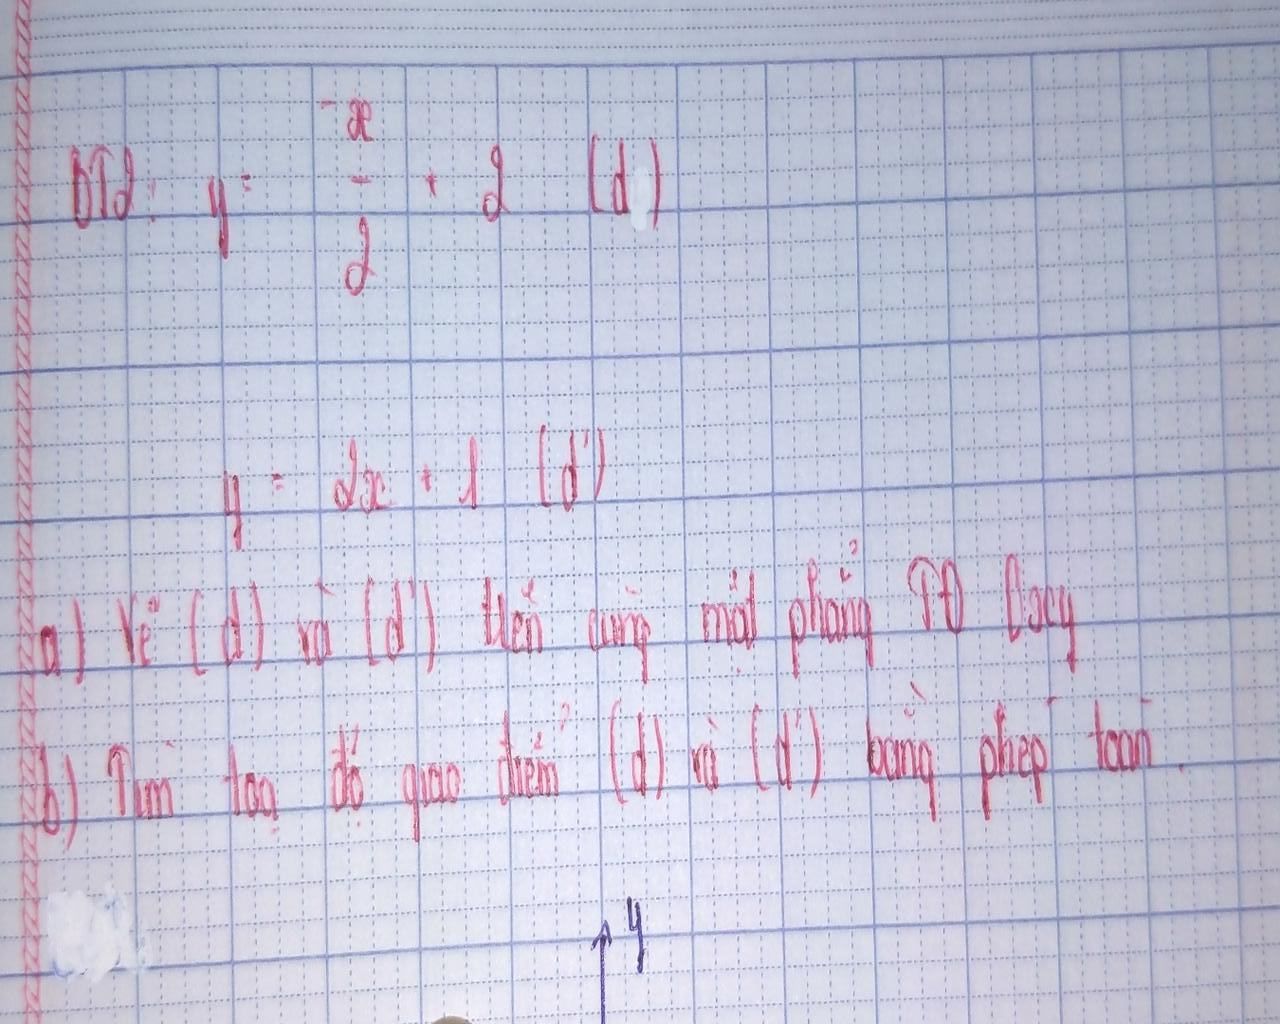 BT2: y = -x/2 + 2 (d)
y = 2x + 1 (d')
a) Vẽ (d) và (d') trên cùng mặt phẳng TĐ Oxy
b) Tìm toạ độ giao điểm (d) và (d') bằng phép toán.
y